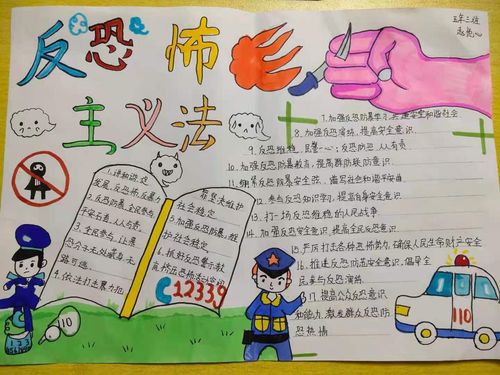 五年三班
反恐怖
主义法
1.谋和稳定
发展,反恐怖,反暴力
2.反恐防暴,全民参与
平安与着,人人有责
3.全民参与,让暴
恐分子无处藏身,无
路可逃
4.依法打击暴力犯
社会稳定
5.加强反恐防暴,维
护社会稳定
6.抓好反恐警示教
12339
7.加强反恐防暴学习,共建安全和谐社会
8.加强反恐演练,提高安全意识
9.反恐维稳,民警一心;反恐防恐,人人有责
10.加强反恐防暴教育,提高群防联防意识
11.绷紧反恐防暴安全弦,谱写社会和谐平安曲
12.参与反恐知识学习,提高自身安全意识
13.打一场反恐维稳的人民战争
14.加强反恐安全意识,提高全民反恐意识
15.严厉打击各种恐怖势力,确保人民生命财产安全
16.推进反恐防范安全意识,倡导全
民参与反恐演练
17.提高公众反恐意识
和能力,激发群众反恐防
恐热情
110
110